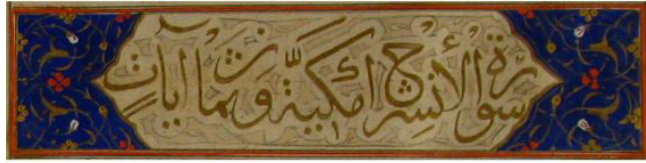 سورة الأنشراح مكية وثمان ايات